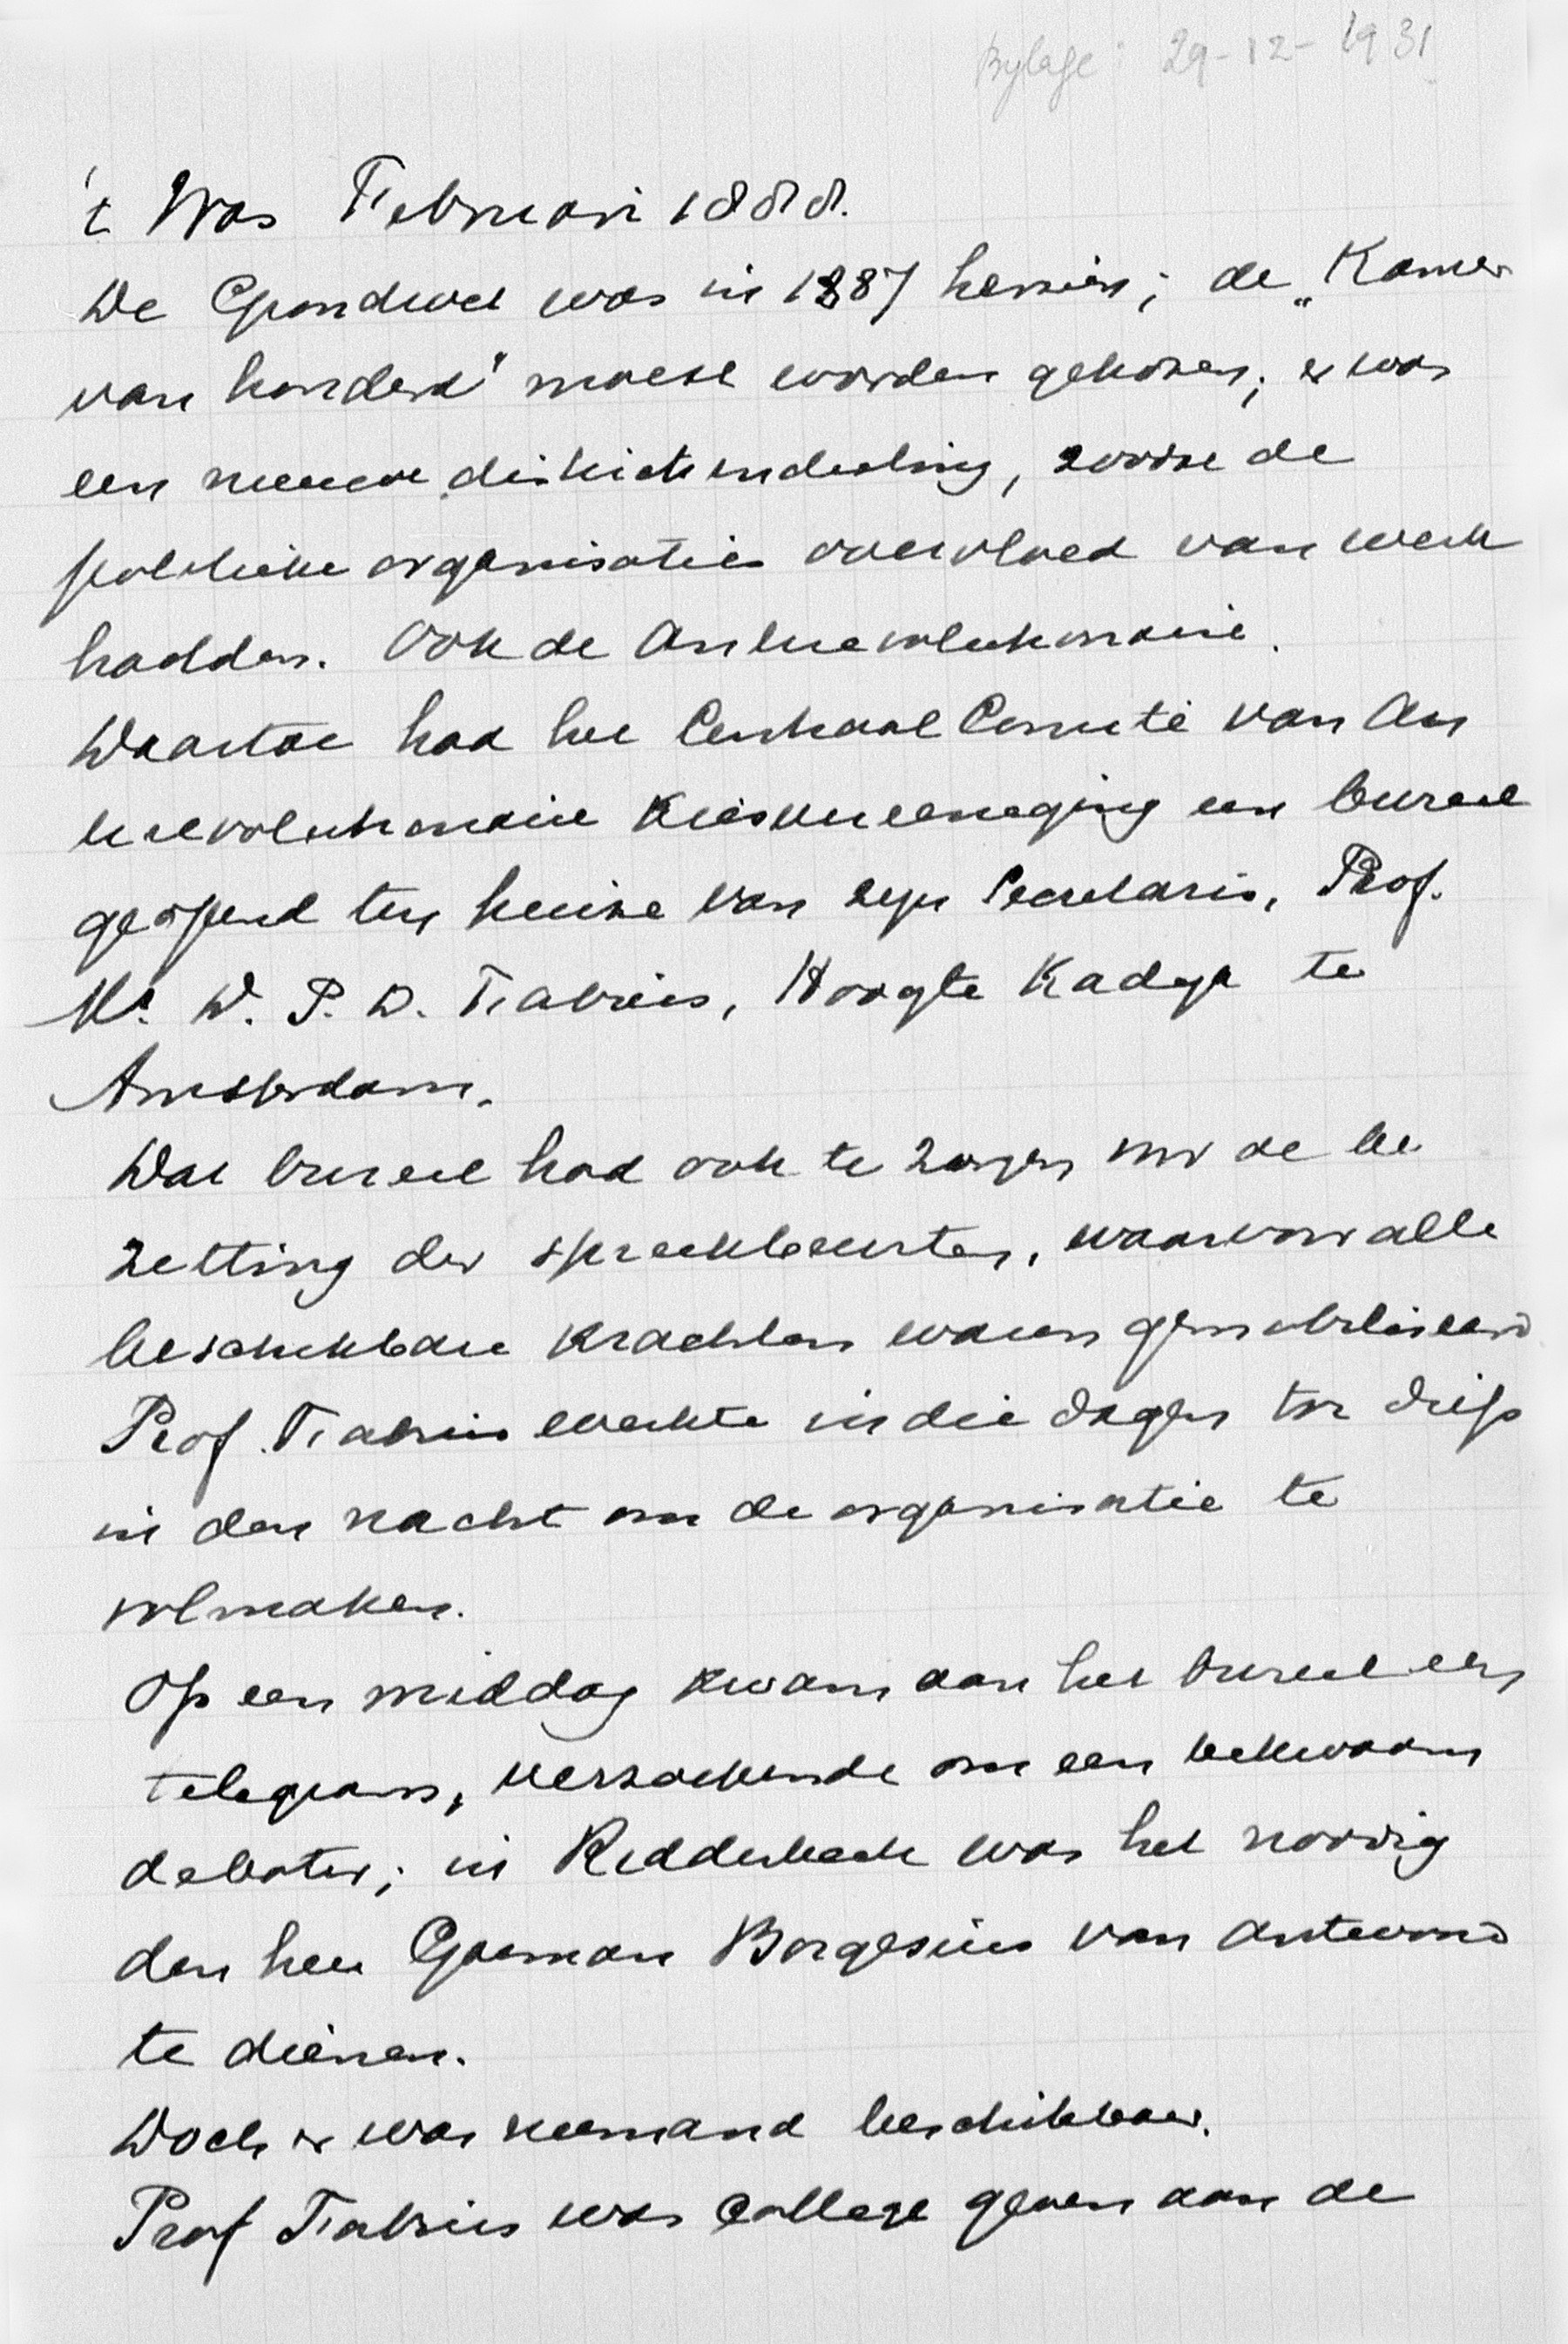 Bylage: 29-12-1931
't Was Februari 1888.
De Grondwet was in 1887 herzien; de „Kamer
van honderd" moest worden gekozen; er was
een nieuwe districtsindeeling, zoodat de
politieke organisaties overvloed van werk
hadden. Ook de Antirevolutionaire.
Daartoe had het Centraal Comité van An
tirevolutionaire Kiesvereeniging een bureel
geopend ten huize van zijn Secretaris, Prof.
Mr. D. P. D. Fabius, Hoogte Kadijk te
Amsterdam.
Dat bureel had ook te zorgen voor de be
zetting der spreekbeurten, waarvoor alle
beschikbare krachten waren gemobiliseerd
Prof. Fabius werkte in die dagen tot diep
in den nacht om de organisatie te
volmaken.
Op een middag kwam aan het bureel een
telegram, verzoekende om een bekwaam
debater; in Ridderkerk was het noodig
den heer Goeman Borgesius van antwoord
te dienen.
Doch er was niemand beschikbaar.
Prof Fabius was college geven aan de